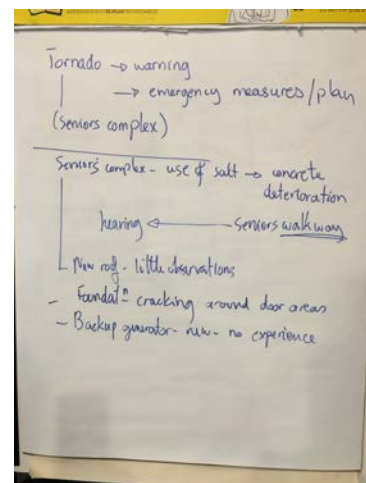 Tornado → warning
→ emergency measures/plan
(Seniors complex)
Seniors complex - use of salt → concrete
deterioration
hearing ← seniors walkway
New roof - little observations
- Foundatⁿ cracking around door areas
- Backup generator - new - no experience